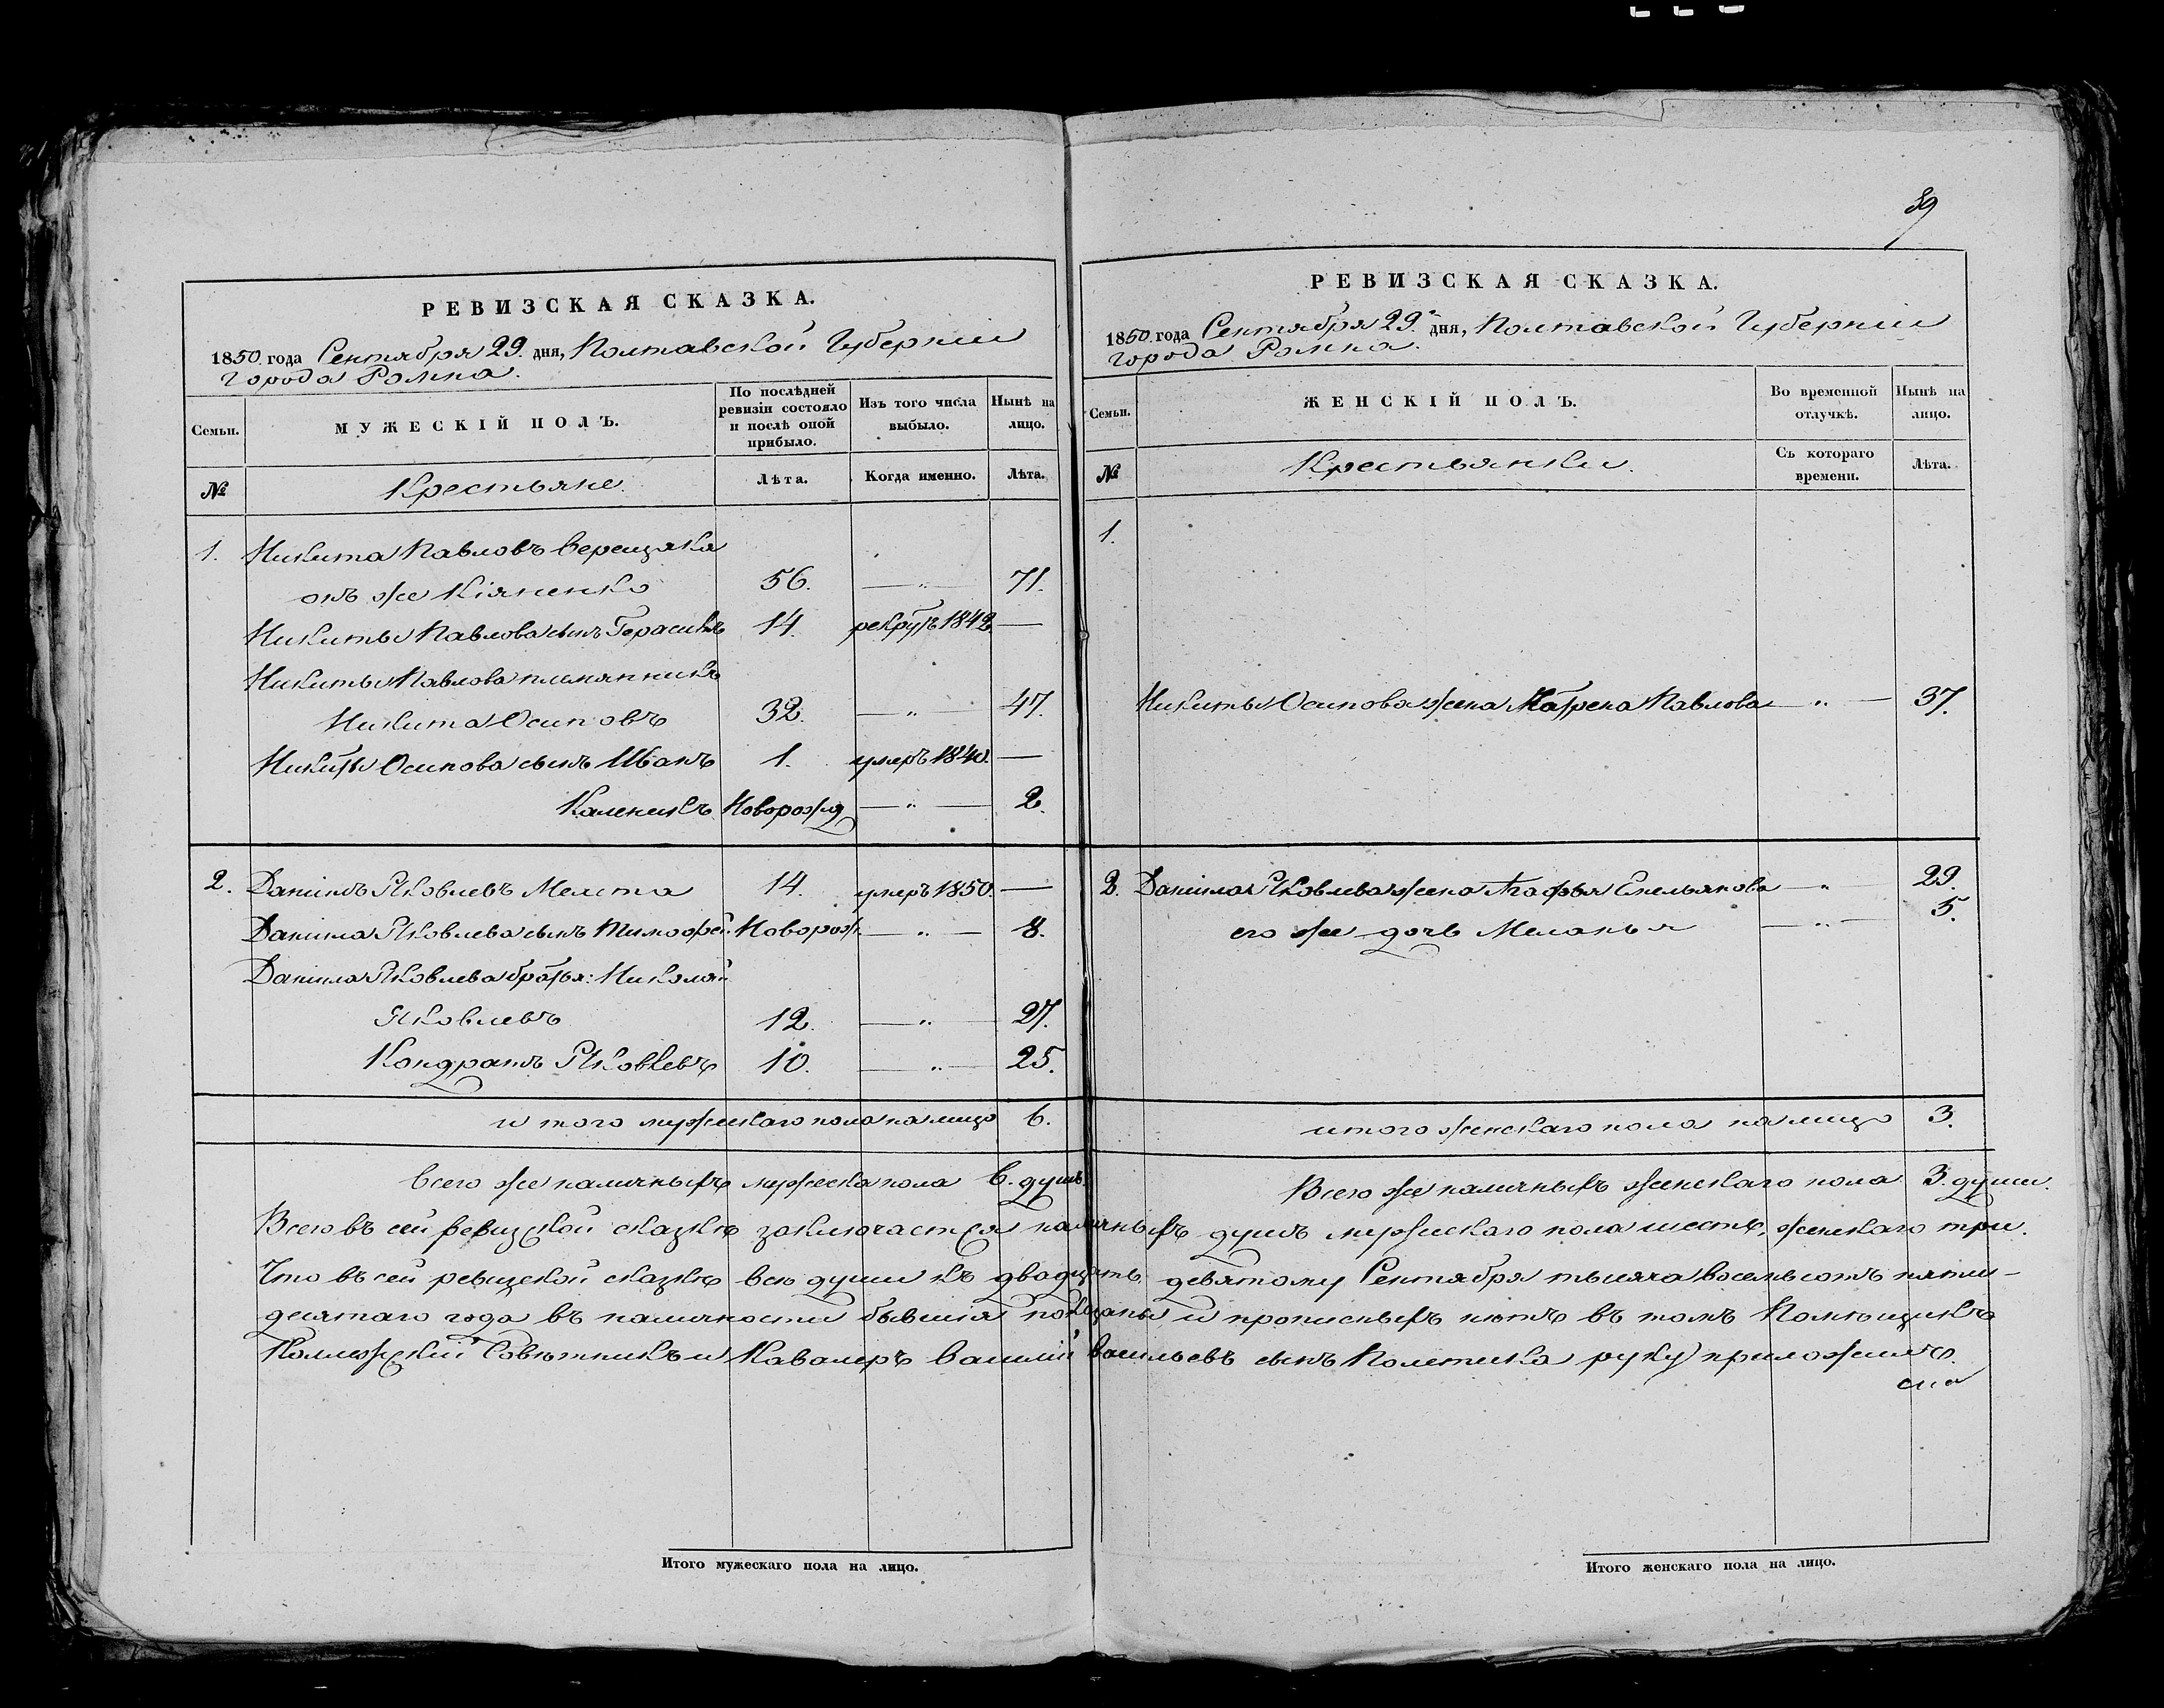 39
РЕВИЗСКАЯ СКАЗКА.
1850. года Сентября 29. дня, Полтавской Губерніи
города Ромна.
Семьи.
МУЖЕСКІЙ ПОЛЪ.
По послѣдней
ревизіи состояло
и послѣ оной
прибыло.
Изъ того числа
выбыло.
Нынѣ на
лицо.
№
Крестьяне.
Лѣта.
Когда именно.
Лѣта.
1. Никита Павловъ Верещака
онъ же Кіяненко 56. — " — 71.
Никиты Павлова сынъ Герасимъ 14. рекрутъ 1842 —
Никиты Павлова племянникъ
Никита Осиповъ 32. — " — 47.
Никиты Осипова сынъ Иванъ 1. умеръ 1840. —
Каленикъ Новорожд. — " — 2.
2. Данилъ Яковлевъ Мелета 14. умеръ 1850. —
Данила Яковлева сынъ Тимофей Новорож. — " — 8.
Данила Яковлева братья: Николай
Яковлевъ 12. — " — 27.
Кондратъ Яковлевъ 10. — " — 25.
и того мужескаго пола на лицо 6.
всего же наличныхъ мужеска пола 6. душъ
РЕВИЗСКАЯ СКАЗКА.
1850. года Сентября 29. дня, Полтавской Губерніи
города Ромна.
Семьи.
ЖЕНСКІЙ ПОЛЪ.
Во временной
отлучкѣ.
Нынѣ на
лицо.
№
Крестьянки.
Съ котораго
времени.
Лѣта.
1.
Никиты Осипова жена Матрена Павлова — " — 37.
2. Данила Яковлева жена Агафья Емельянова — " 29.
его же дочь Меланья — " — 5.
итого женскаго пола на лицо 3.
Всего же наличныхъ женскаго пола 3. души.
Всего въ сей ревизской сказкѣ заключается наличныхъ душъ мужескаго пола шесть, женскаго три.
Что въ сей ревизской сказкѣ всѣ души къ двадцать девятому Сентября тысяча восемьсотъ пяти-
десятаго года въ наличности бывшія показаны и прописныхъ нѣтъ въ томъ Помѣщикъ
Коллежскій Совѣтникъ и Кавалеръ Василій Васильевъ сынъ Полетика руку приложилъ.
Итого мужескаго пола на лицо.
Итого женскаго пола на лицо.